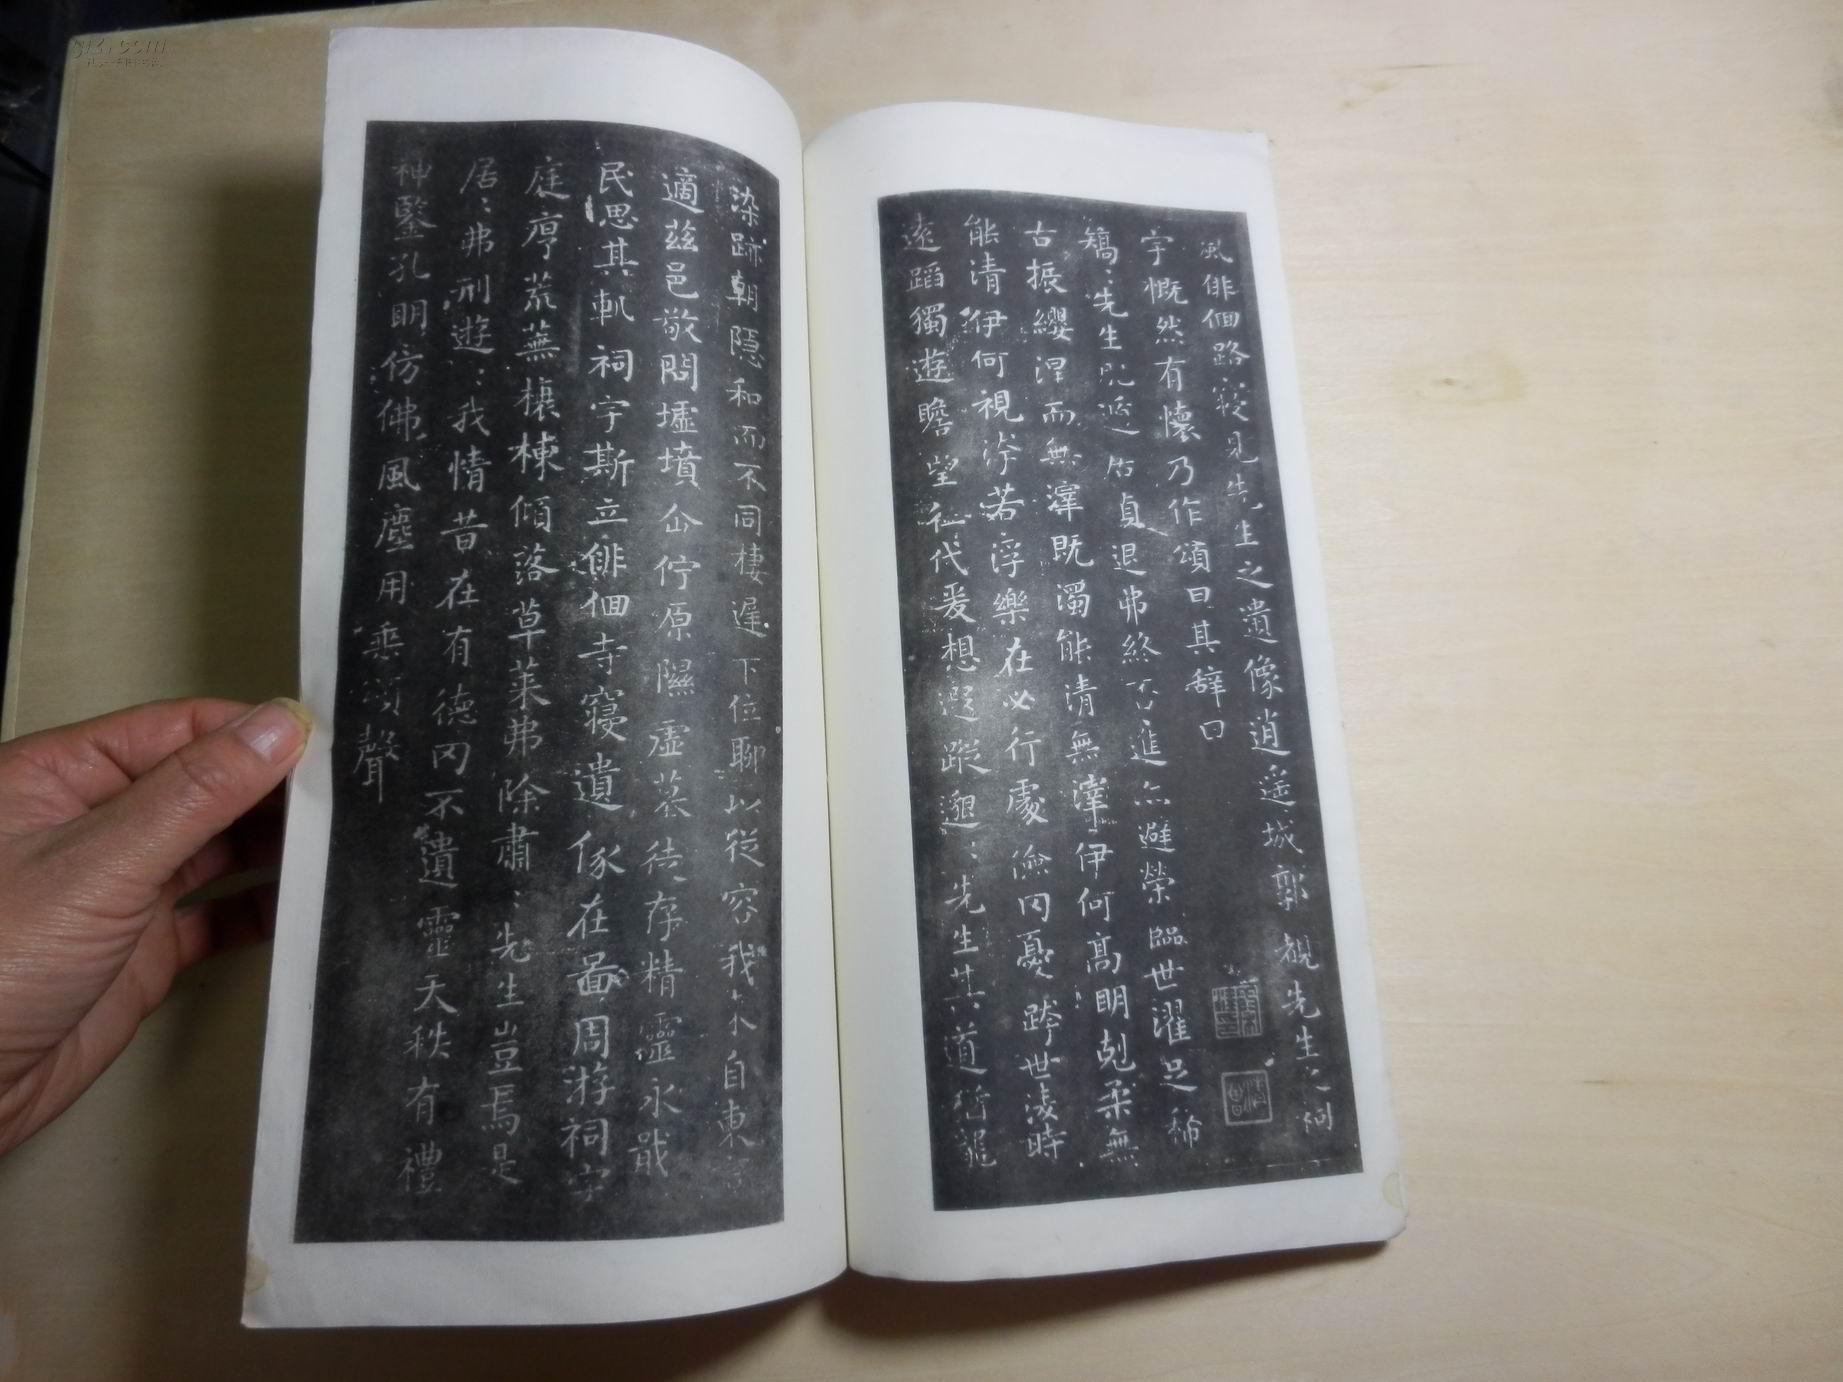 風俳佪路寑見先生之遺像逍遥城郭覩先生之祠
宇慨然有懷乃作頌曰其辞曰
矯:先生肥遁居貞退弗終否進亦避榮臨世濯足稀
古振纓涅而無滓既濁能清無滓伊何高明剋柔無
能清伊何視汙若浮樂在必行處儉罔憂跨世淩時
遠蹈獨遊瞻望往代爰想遐蹤邈:先生其道猶龍
染跡朝隐和而不同棲遲下位聊以從容我来自東言
適兹邑敬問墟墳企佇原隰虚墓徒存精靈永戢
民思其軌祠宇斯立俳佪寺寑遺像在啚周游祠宇
庭序荒蕪榱棟傾落草萊弗除肅:先生豈焉是
居:弗刑遊:我情昔在有德罔不遺靈天秩有禮
神鑒孔明仿佛風塵用垂頌聲